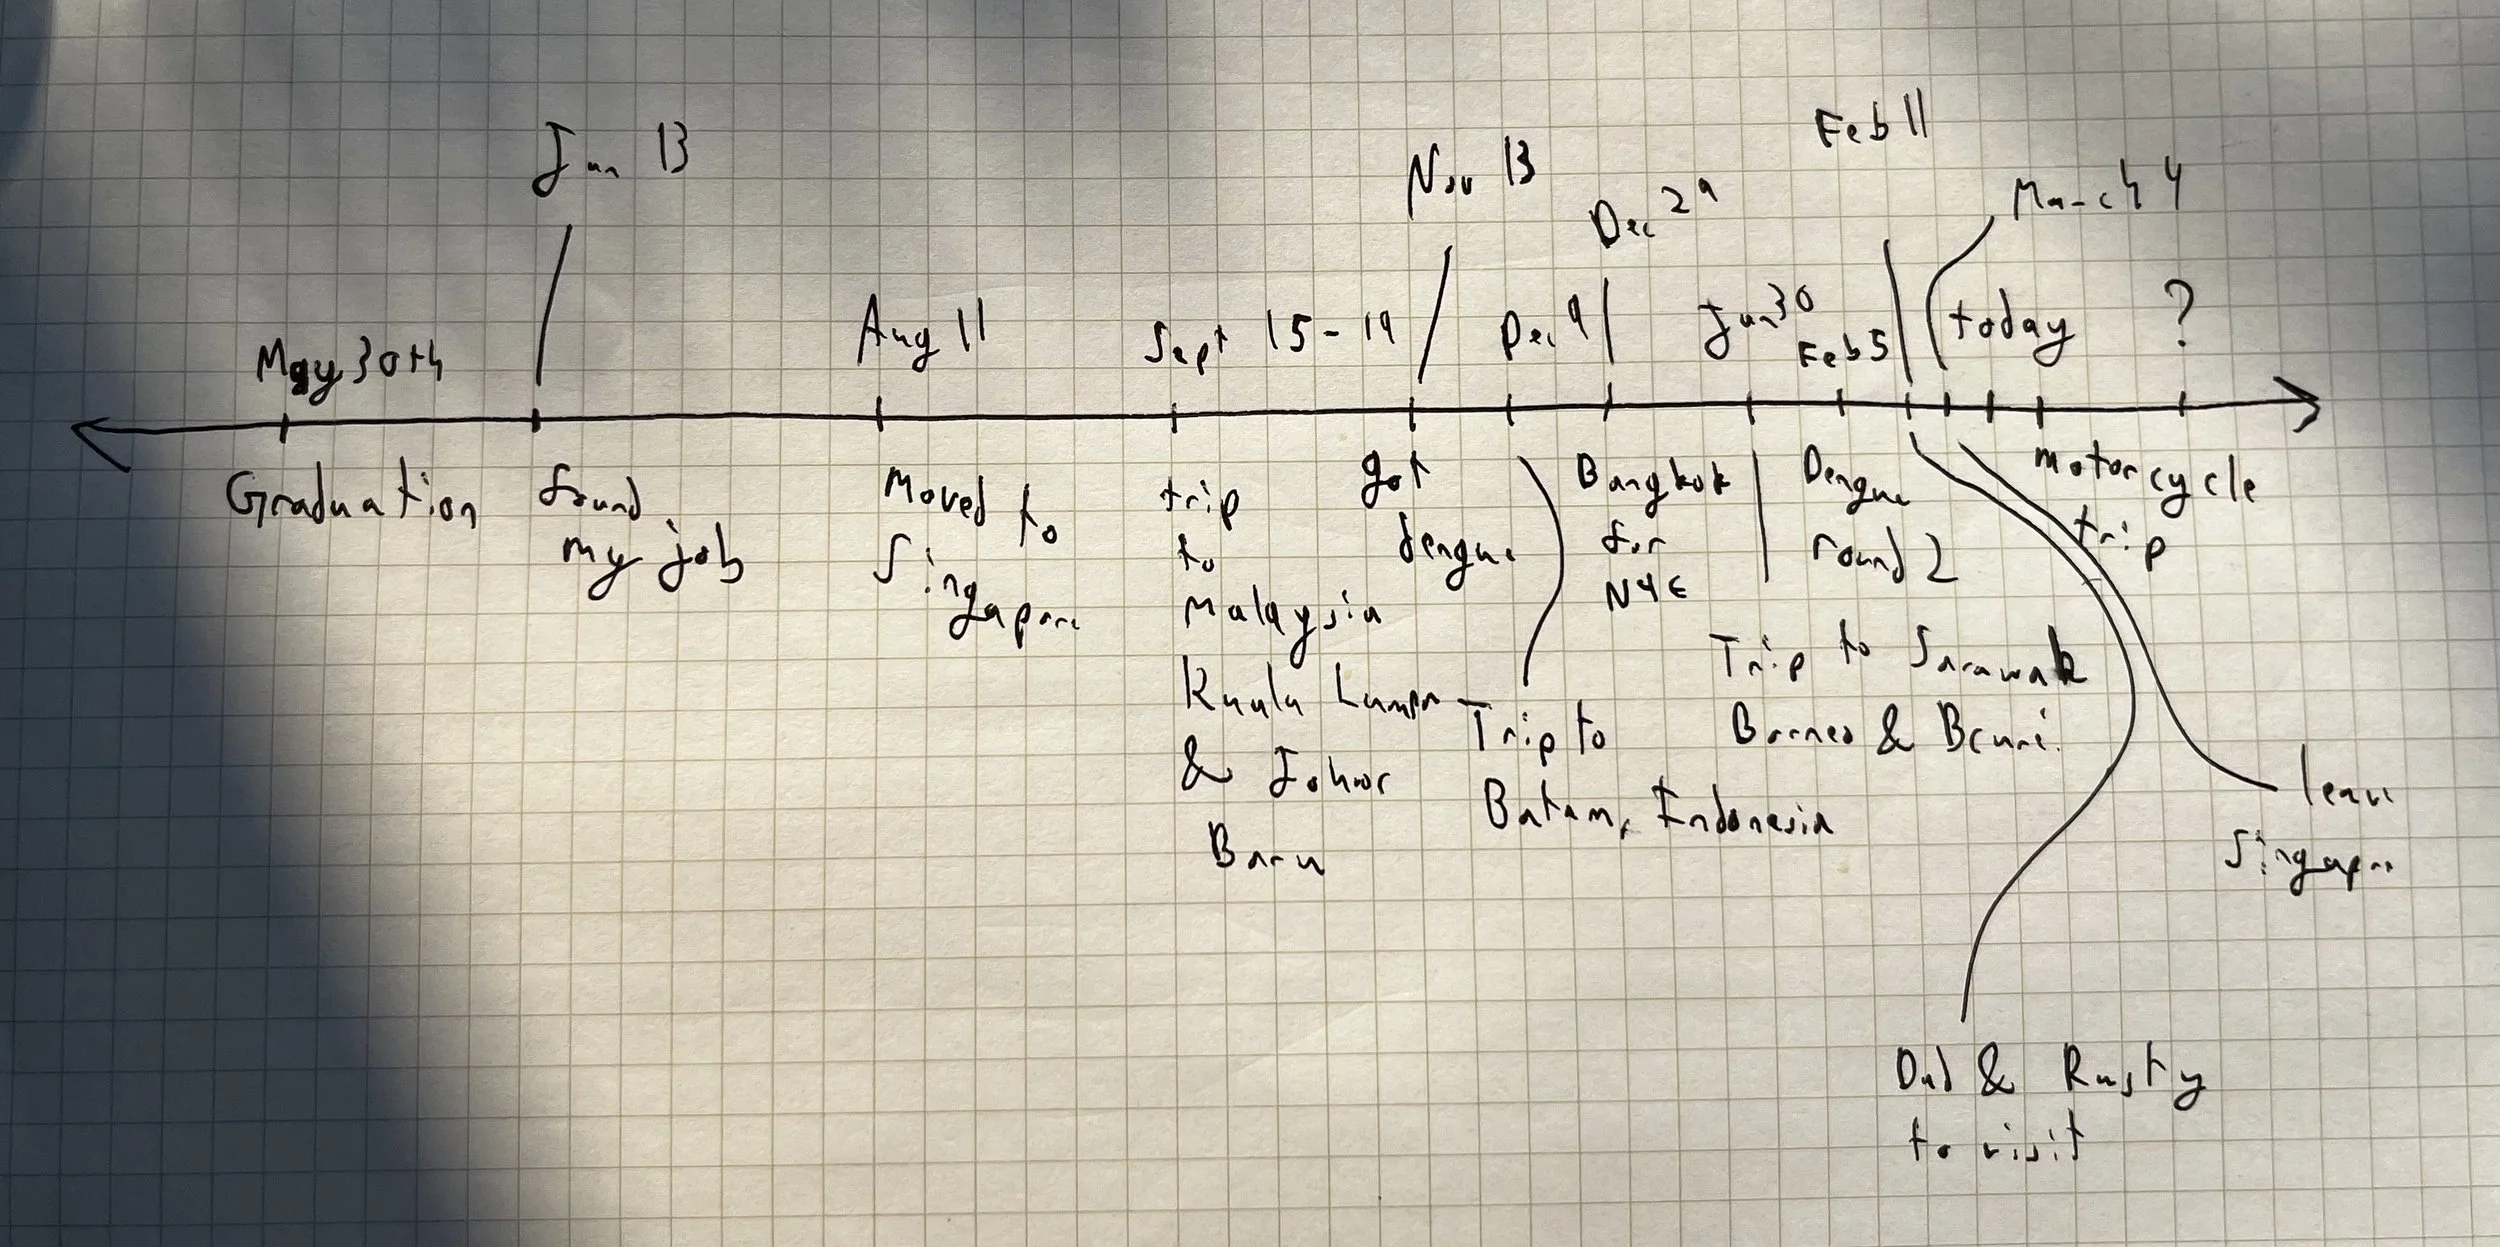 Jun 13
Nov 13
Feb 11
Dec 29
March 4
May 30th
Aug 11
Sept 15-19
Dec 9
Jan 30
Feb 5
today
?
Graduation
found
my job
Moved to
Singapore
trip
to
Malaysia
Kuala Lumpr
& Johor
Baru
got
dengue
Trip to
Batam, Indonesia
Bangkok
for
NYE
Trip to Sarawak
Borneo &
Dengue
round 2
Dad & Rusty
to visit
leave
Singapore
motorcycle
trip